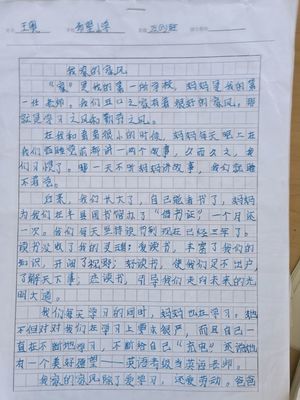 王勇 希望小学
我家的家风
“家”是我的第一所学校，妈妈是我的第
一任老师，我们五口之家有着很好的家风，那
就是学习之风和勤劳之风。
在我和哥哥很小的时候，妈妈每天晚上在
我们临睡前都讲一两个故事，久而久之，我
们习惯了。哪一天不听妈妈讲故事，我们就睡
不着觉。
后来，我们长大了，自己能看书了，妈妈
为我们在丰县图书馆办了“借书证”一个月还
一次。我们每天坚持读书到现在已经三年了。
读书没收了我的灵魂；爱读书，丰富了我们的
知识，开阔了视野；好读书，使我们足不出户，
了解天下事； 读书，引导我们走向未来的光
明大道。
我们每天学习的同时，妈妈也在学习。她
不但对对我们在学习上要求很严，而且自己一
直在不断地学习，不断给自己“充电”英语她
有一个美好愿望——英语考级当英语老师。
我家的家风除了爱学习，还爱劳动。爸爸